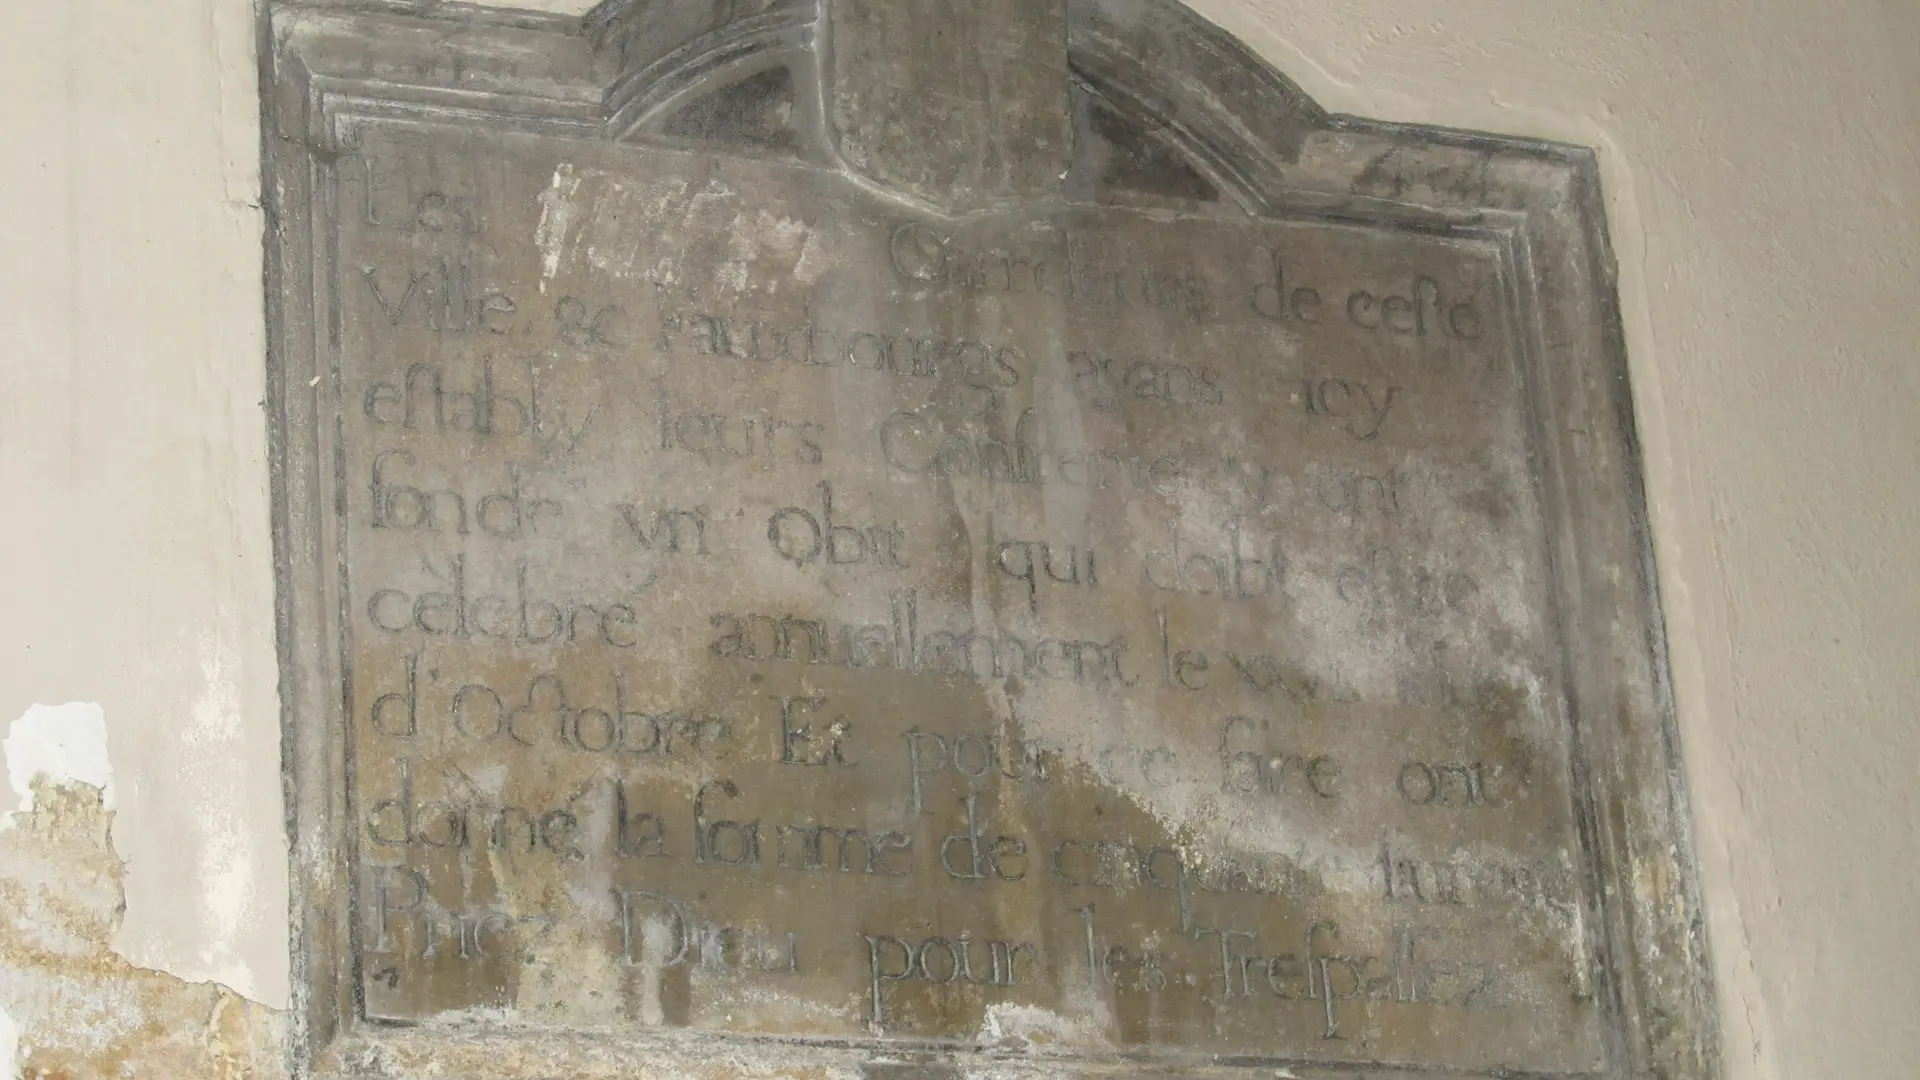 Les Carreleurs de ceſte
Ville, & Fauxbourgs ayans icy
eſtably leurs Confrerie y ont
fondé vn Obit qui doibt eſtre
célébré annuellement le
d'Octobre Et pour ce faire ont
donné la ſomme de cinquante liures
Priez Dieu pour les Treſpaſſez